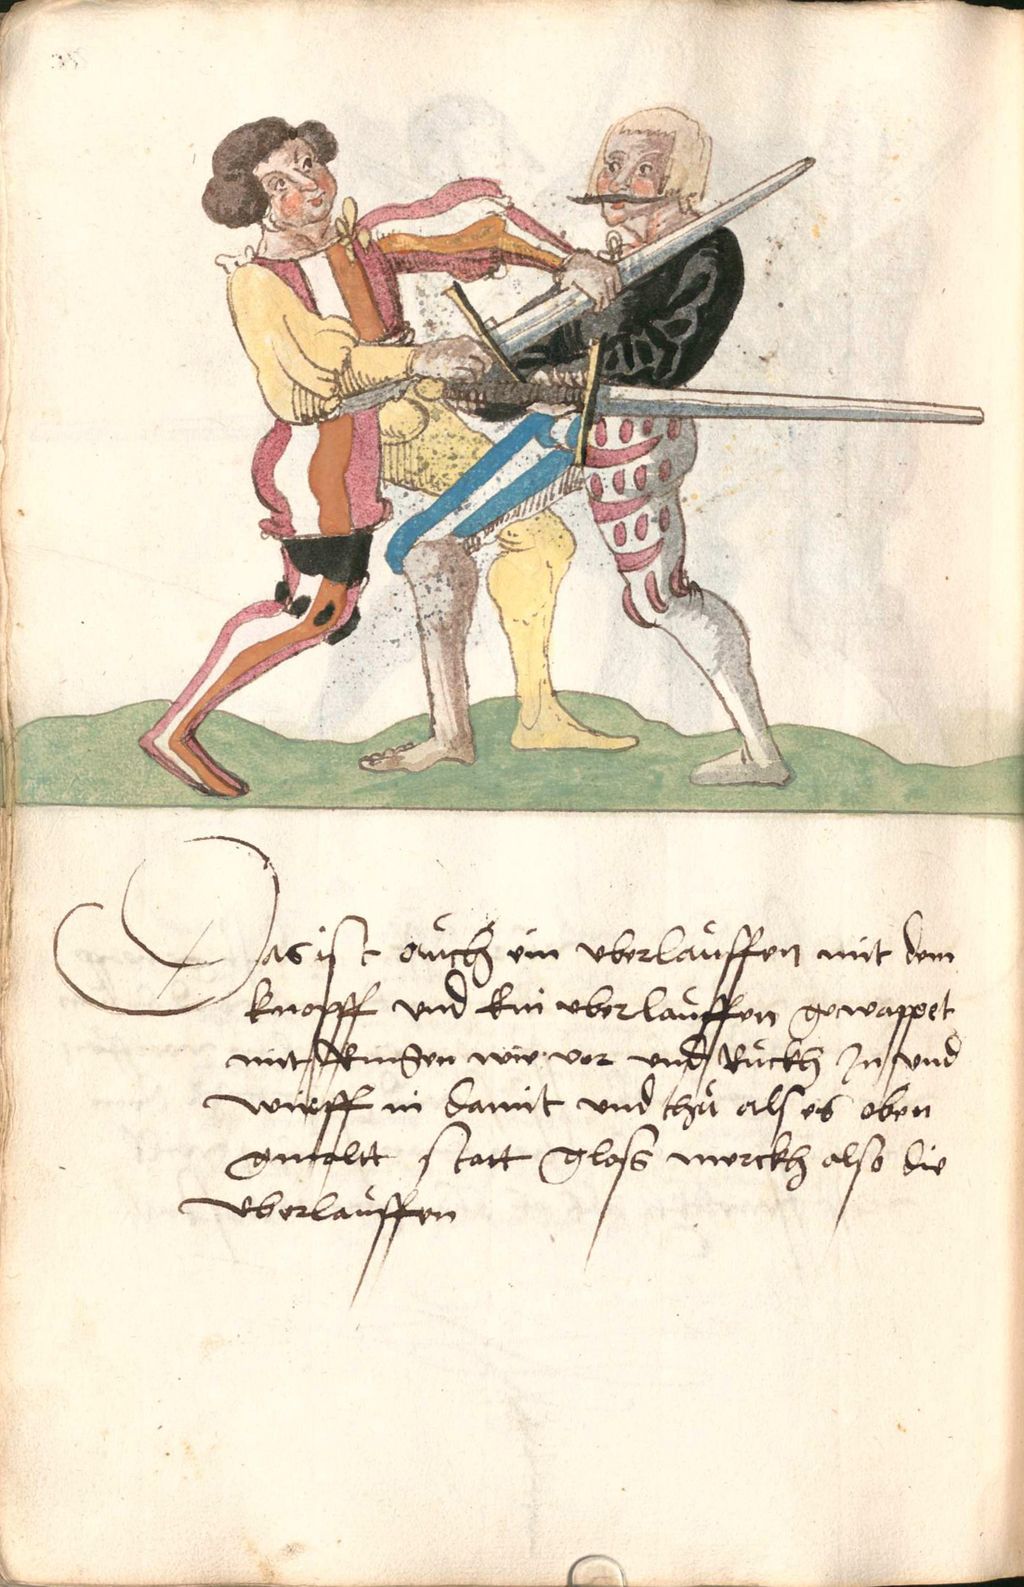 Das ist auch ein vberlauffen mit dem
knopff vnd kin vberlauffen gewappet
mit Ringen wie vor vnd Ruckh In vnd
wirff in damit vnd thu als es oben
gmaltt statt gloss merckh also die
vberlauffen